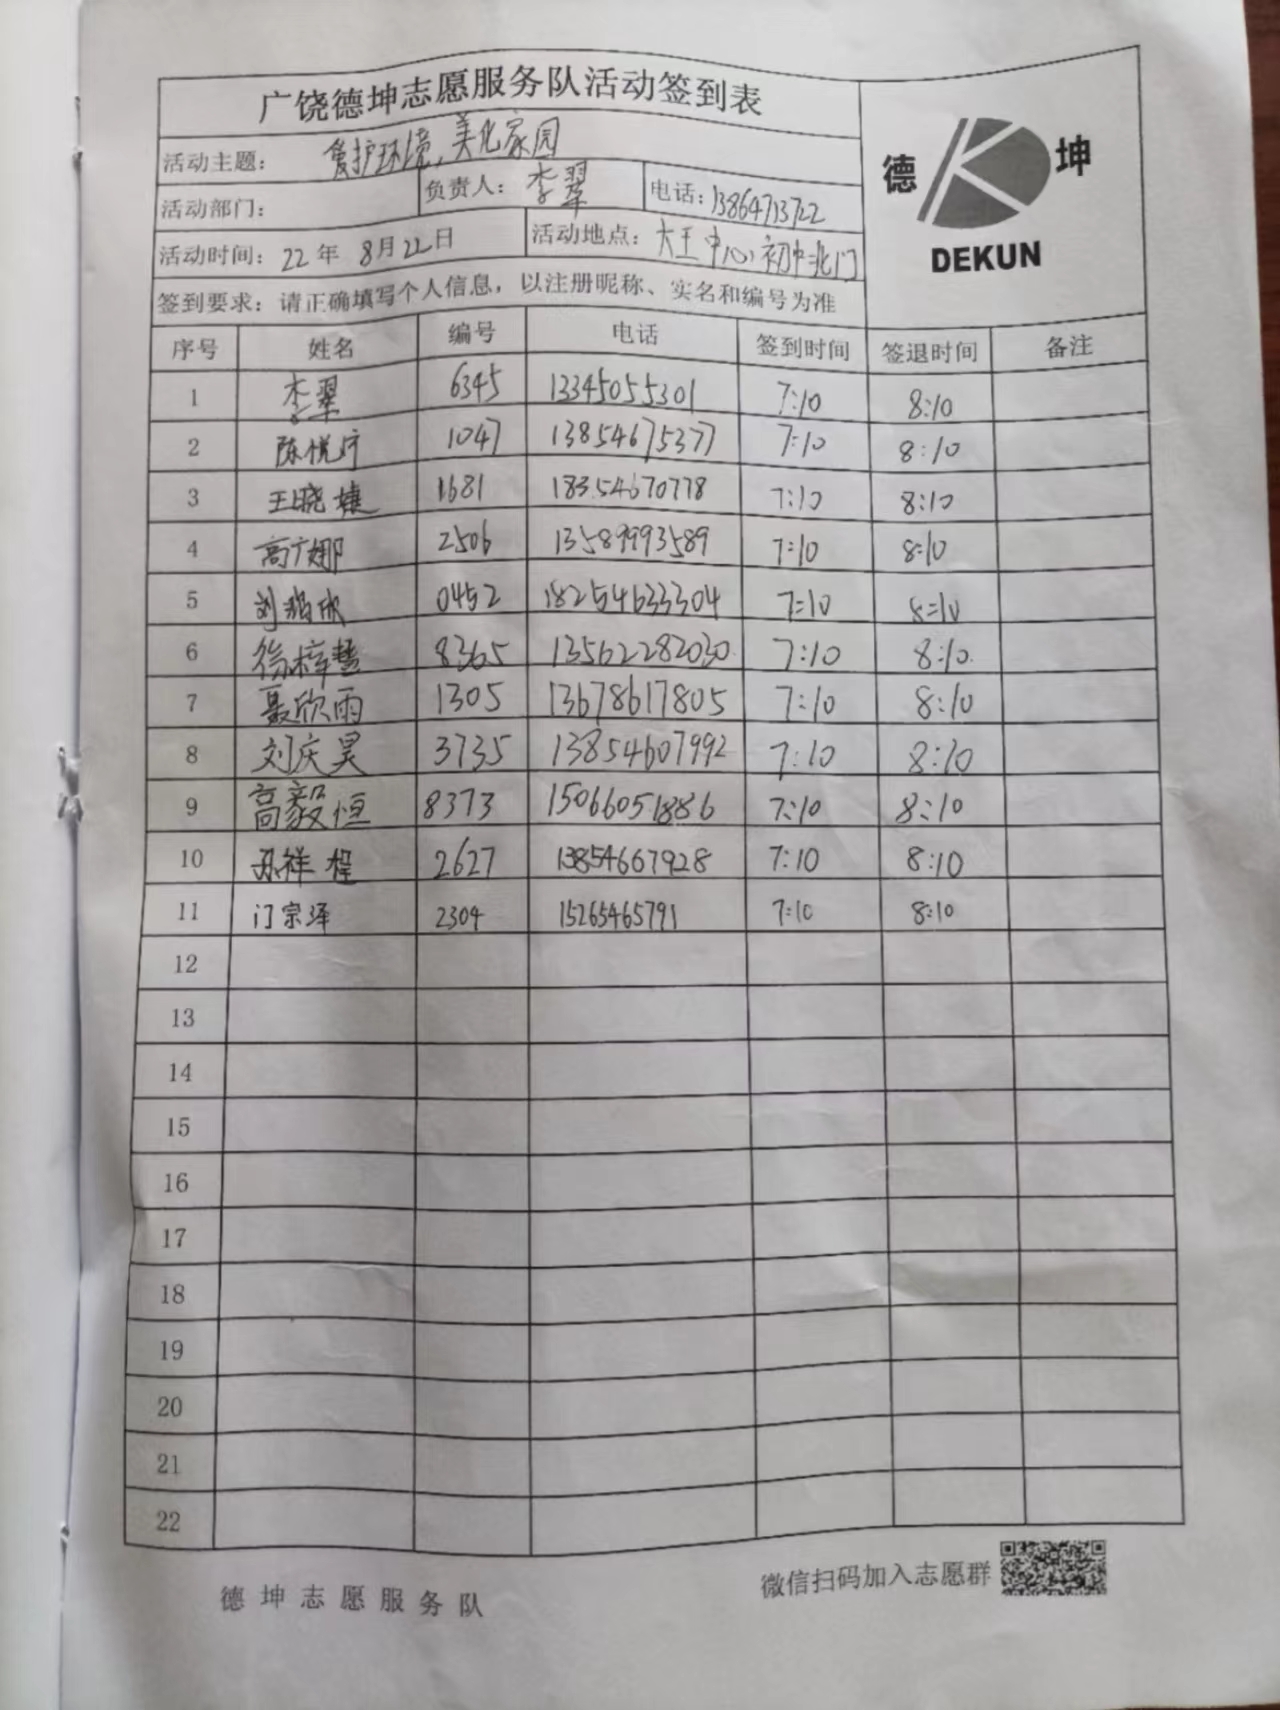 广饶德坤志愿服务队活动签到表
德 坤
DEKUN
活动主题： 爱护环境，美化家园
活动部门： 负责人：李翠 电话：13864713722
活动时间：22年 8月22日 活动地点：大王中心初中北门
签到要求：请正确填写个人信息，以注册昵称、实名和编号为准
序号 姓名 编号 电话 签到时间 签退时间 备注
1 李翠 6345 13345055301 7:10 8:10
2 陈悦 1047 13854675377 7:10 8:10
3 王晓婕 1681 18354670778 7:10 8:10
4 高广娜 2506 13589993589 7:10 8:10
5 刘 欣 0452 18254633304 7:10 8:10
6 徐梓慧 8365 13562282030 7:10 8:10
7 聂欣雨 1305 13678617805 7:10 8:10
8 刘庆昊 3735 13854607992 7:10 8:10
9 高毅恒 8373 15066051886 7:10 8:10
10 孙祥程 2627 13854667928 7:10 8:10
11 门宗泽 2304 15265465791 7:10 8:10
12
13
14
15
16
17
18
19
20
21
22
德坤志愿服务队 微信扫码加入志愿群